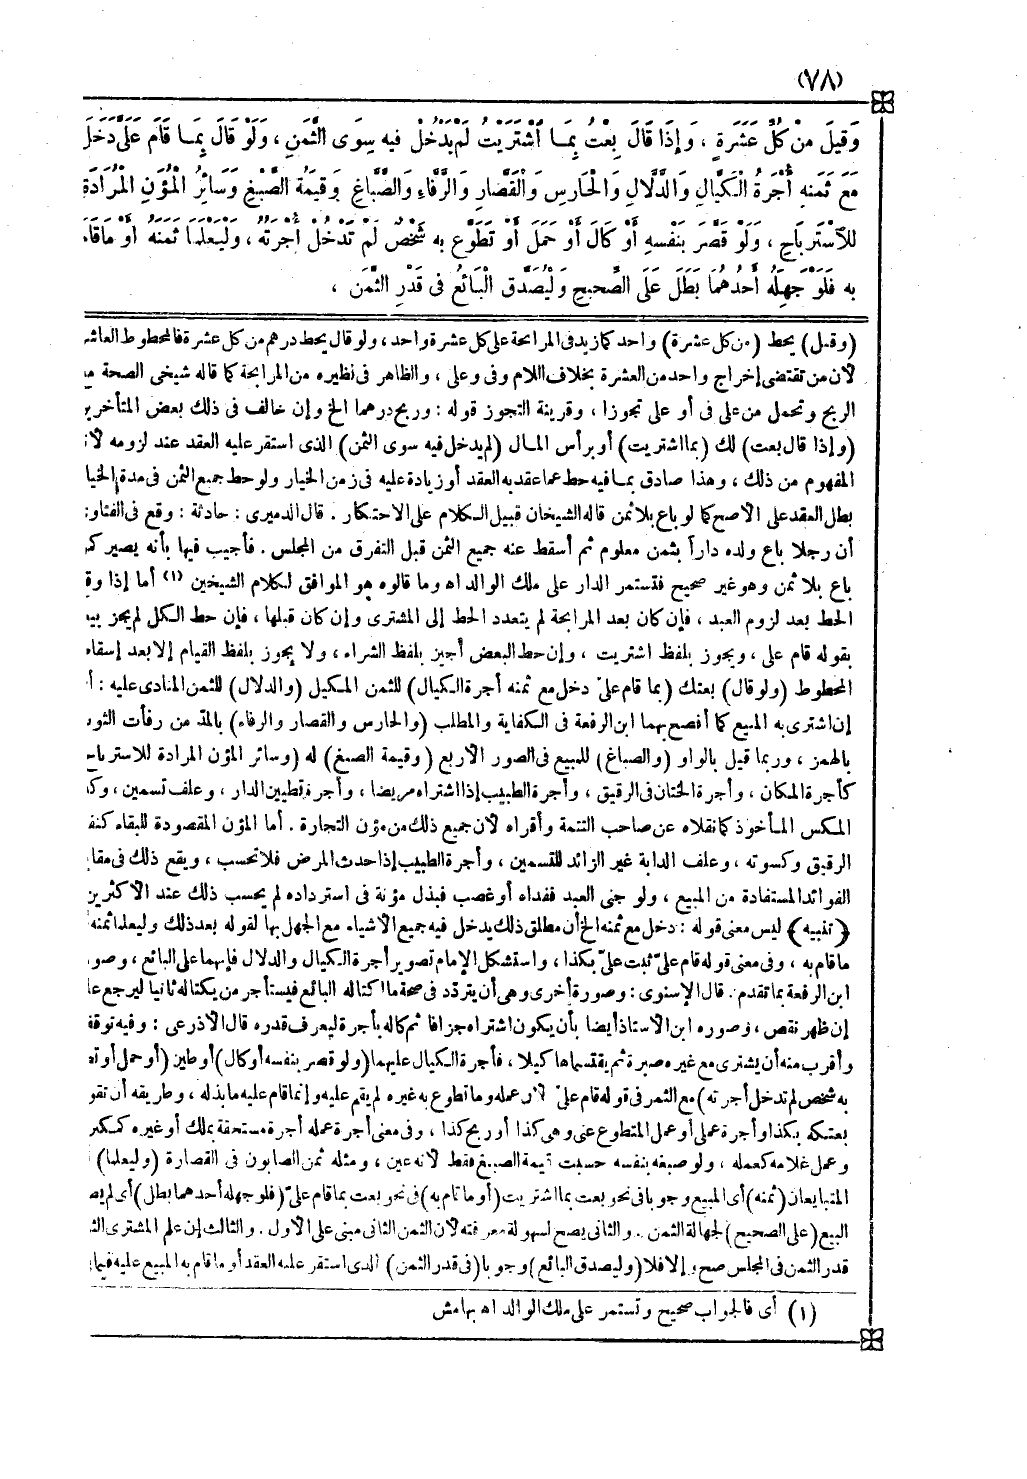 (٧٨)
وَقِيلَ مِنْ كُلِّ عَشَرَةٍ ، وَإِذَا قَالَ بِعْتُ بِمَا اشْتَرَيْتُ لَمْ يَدْخُلْ فِيهِ سِوَى الثَّمَنِ ، وَلَوْ قَالَ بِمَا قَامَ عَلَيَّ دَخَلَ
مَعَ ثَمَنِهِ أُجْرَةُ الْكَيَّالِ وَالدَّلَّالِ وَالْحَارِسِ وَالْقَصَّارِ وَالرَّفَّاءِ وَالصَّبَّاغِ وَقِيمَةُ الصِّبْغِ وَسَائِرُ الْمُؤَنِ الْمُرَادَةِ
لِلاسْتِرْبَاحِ ، وَلَوْ قَصَّرَ بِنَفْسِهِ أَوْ كَالَ أَوْ حَمَلَ أَوْ تَطَوَّعَ بِهِ شَخْصٌ لَمْ تَدْخُلْ أُجْرَتُهُ ، وَلْيَعْلَمَا ثَمَنَهُ أَوْ مَاقَامَ
بِهِ فَلَوْ جَهِلَهُ أَحَدُهُمَا بَطَلَ عَلَى الصَّحِيحِ وَلْيُصَدَّقِ الْبَائِعُ فِى قَدْرِ الثَّمَنِ ،
(وقيل) يحط (من كل عشرة) واحد كما زيد فى المرابحة على كل عشرة واحد ، ولو قال بحط درهم من كل عشرة فالمحطوط العاشر
لأن من تقتضى إخراج واحد من العشرة بخلاف اللام وفى وعلى ، والظاهر فى نظيره من المرابحة كما قاله شيخى الصحة مع
الربح وتحمل من على فى أو على تجوزا ، وقرينة التجوز قوله : وربح درهما الخ وإن خالف فى ذلك بعض المتأخرين
(وإذا قال بعت) لك (بما اشتريت) أو برأس المال (لم يدخل فيه سوى الثمن) الذى استقر عليه العقد عند لزومه لأنه
المفهوم من ذلك ، وهذا صادق بما فيه حط عما عقد به العقد أو زيادة عليه فى زمن الخيار ولو حط جميع الثمن فى مدة الخيار
بطل العقد على الأصح كما لو باع بلا ثمن قاله الشيخان قبيل الكلام على الاحتكار . قال الدميرى : حادثة : وقع فى الفتاوى
أن رجلا باع ولده داراً بثمن معلوم ثم أسقط عنه جميع الثمن قبل التفرق من المجلس . فأجيب فيها بأنه يصير كمن
باع بلا ثمن وهو غير صحيح فتستمر الدار على ملك الوالد اه وما قالوه هو الموافق لكلام الشيخين (١) أما إذا وقع
الحط بعد لزوم العبد ، فإن كان بعد المرابحة لم يتعدد الحط إلى المشترى وإن كان قبلها ، فإن حط الكل لم يجز بيعه
بقوله قام على ، ويجوز بلفظ اشتريت ، وإن حط البعض أجيز بلفظ الشراء ، ولا يجوز بلفظ القيام إلا بعد إسقاط
المحطوط (ولو قال) بعتك (بما قام علىّ دخل مع ثمنه أجرة الكيال) للثمن المكيل (والدلال) للثمن المنادى عليه :
إن اشترى به المبيع كما أفصح بهما ابن الرفعة فى الكفاية والمطلب (والحارس والقصار والرفاء) بالمد من رفأت الثوب
بالهمز ، وربما قيل بالواو (والصباغ) للمبيع فى الصور الأربع (وقيمة الصبغ) له (وسائر المؤن المرادة للاسترباح
كأجرة المكان ، وأجرة الختان فى الرقيق ، وأجرة الطبيب إذا اشتراه مريضا ، وأجرة تطيين الدار ، وعلف تسمين ، وكذا
المكس المأخوذ كما نقلاه عن صاحب التتمة وأقراه لأن جميع ذلك من مؤن التجارة . أما المؤن المقصودة للبقاء كنفقة
الرقيق وكسوته ، وعلف الدابة غير الزائد للتسمين ، وأجرة الطبيب إذا حدث المرض فلا تحسب ، ويقع ذلك فى مقابلة
الفوائد المستفادة من المبيع ، ولو جنى العبد ففداه أو غصب فبذل مؤنة فى استرداده لم يحسب ذلك عند الأكثرين
﴿تنبيه﴾ ليس معنى قوله : دخل مع ثمنه الخ أن مطلق ذلك يدخل فيه جميع الأشياء مع الجهل بها لقوله بعد ذلك وليعلما ثمنه
ما قام به ، وفى معنى قوله قام علىّ ثبت علىّ بكذا ، واستشكل الإمام تصوير أجرة الكيال والدلال فإنهما على البائع ، وصوره
ابن الرفعة بما تقدم . قال الإسنوى : وصورة أخرى وهى أن يتردّد فى صحة ما اكتاله البائع فيستأجر من يكتاله ثانيا ليرجع عليه
إن ظهر نقص ، وصوره ابن الأستاذ أيضا بأن يكون اشتراه جزافا ثم كاله بأجرة ليعرف قدره قال الأذرعى : وفيه توقف
وأقرب منه أن يشترى مع غيره صبرة ثم يقتسماها كيلا ، فأجرة الكيال عليهما (ولو قصر بنفسه أو كال) أو طين (أو حمل أو تطوع
به شخص لم تدخل أجرته) مع الثمن فى قوله قام علىّ لأن عمله وما تطوع به غيره لم يقم عليه وإنما قام عليه ما بذله ، وطريقه أن يقول
بعتكه بكذا وأجرة عملى أو عمل المتطوع عنى وهى كذا أو ربح كذا ، وفى معنى أجرة عمله أجرة مستحقة بملك أو غيره كمكترى
وعمل غلامه كعمله ، ولو صبغه بنفسه حسبت قيمة الصبغ فقط لأنه عين ، ومثله ثمن الصابون فى القصارة (وليعلما)
المتبايعان (ثمنه) أى المبيع وجوبا فى نحو بعت بما اشتريت (أو ما قام به) فى نحو بعت بما قام علىّ (فلو جهله أحدهما بطل) أى لم يصح
البيع (على الصحيح) لجهالة الثمن . والثانى يصح لسهولة معرفته لأن الثمن الثانى مبنى على الأول . والثالث إن علم المشترى
قدر الثمن فى المجلس صح وإلا فلا (وليصدق البائع) وجوبا (فى قدر الثمن) الذى استقر عليه العقد أو ما قام به المبيع عليه فيما
(١) أى فالجواب صحيح وتستمر على ملك الوالد اه بهامش